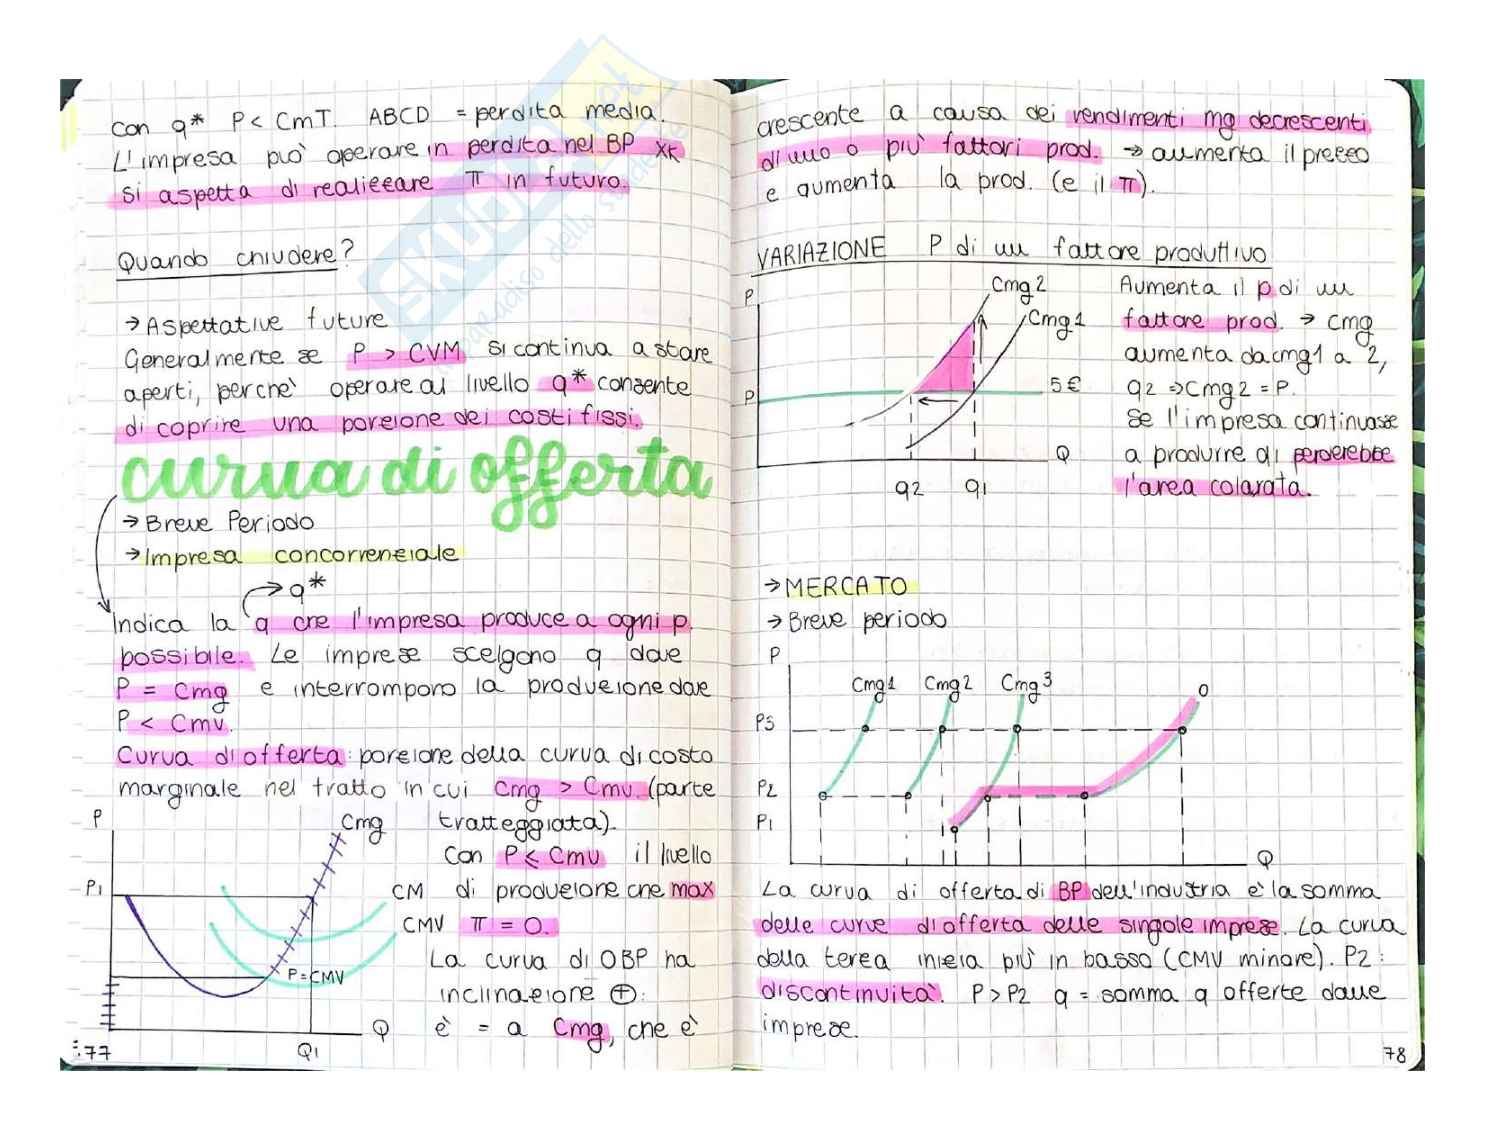 con q* P < CmT. ABCD = perdita media.
L'impresa può operare in perdita nel BP xk
si aspetta di realizzare π in futuro.
Quando chiudere?
→ Aspettative future
Generalmente se P > CVM si continua a stare
aperti, perchè operare al livello q* consente
di coprire una porzione dei costi fissi.
curva di offerta
→ Breve Periodo
→ Impresa concorrenziale
→ q*
Indica la q che l'impresa produce a ogni p
possibile. Le imprese scelgono q dove
P = Cmg e interrompono la produzione dove
P < Cmv.
Curva di offerta: porzione della curva di costo
marginale nel tratto in cui Cmg > Cmv (parte
tratteggiata).
Con P ≤ Cmv il livello
di produzione che max
π = 0.
La curva di OBP ha
inclinazione ⊕:
è = a Cmg, che è
P
Cmg
P1
CM
CMV
P=CMV
Q
Q1
77
crescente a causa dei rendimenti mg decrescenti
di uno o più fattori prod. → aumenta il prezzo
e aumenta la prod. (e il π).
VARIAZIONE P di un fattore produttivo
P
Cmg 2
Cmg 1
P
5€
Q
q2 q1
Aumenta il p di un
fattore prod. → cmg
aumenta da cmg1 a 2,
q2 ⇒ Cmg2 = P.
Se l'impresa continuasse
a produrre q1 perderebbe
l'area colorata.
→ MERCATO
→ Breve periodo
P
Cmg1 Cmg2 Cmg3 O
P3
P2
P1
Q
La curva di offerta di BP dell'industria è la somma
delle curve di offerta delle singole imprese. La curva
della terza inizia più in basso (CMV minore). P2:
discontinuità. P>P2 q = somma q offerte dalle
imprese.
78
SKUOLA.net
il paradiso dello studente